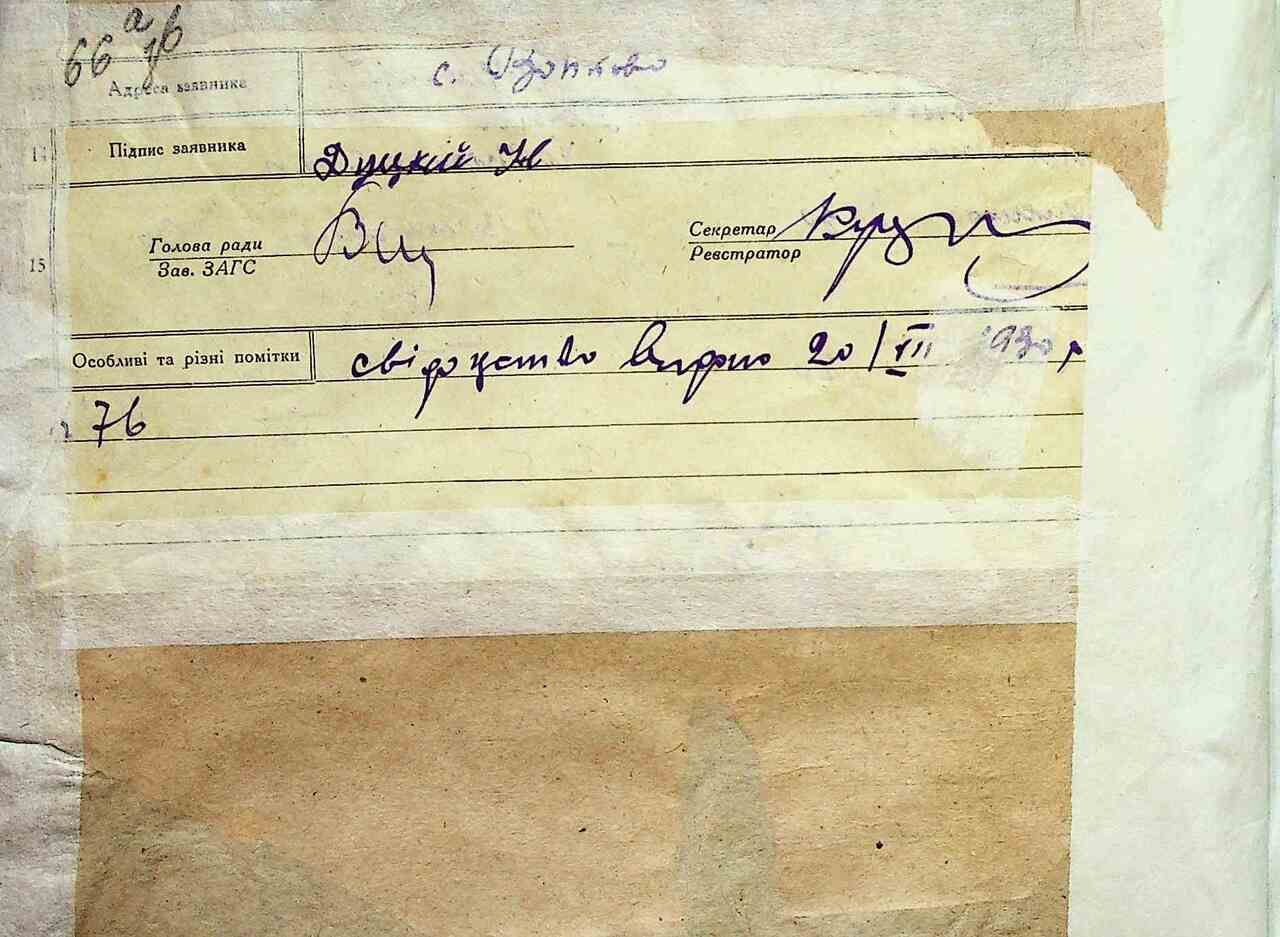 66 а зв
13 Адреса заявника с.
14 Підпис заявника Дуцкий
Голова ради Секретар
15 Зав. ЗАГС Реєстратор
Особливі та різні помітки свідоцтво 20/VII 1930 р
76